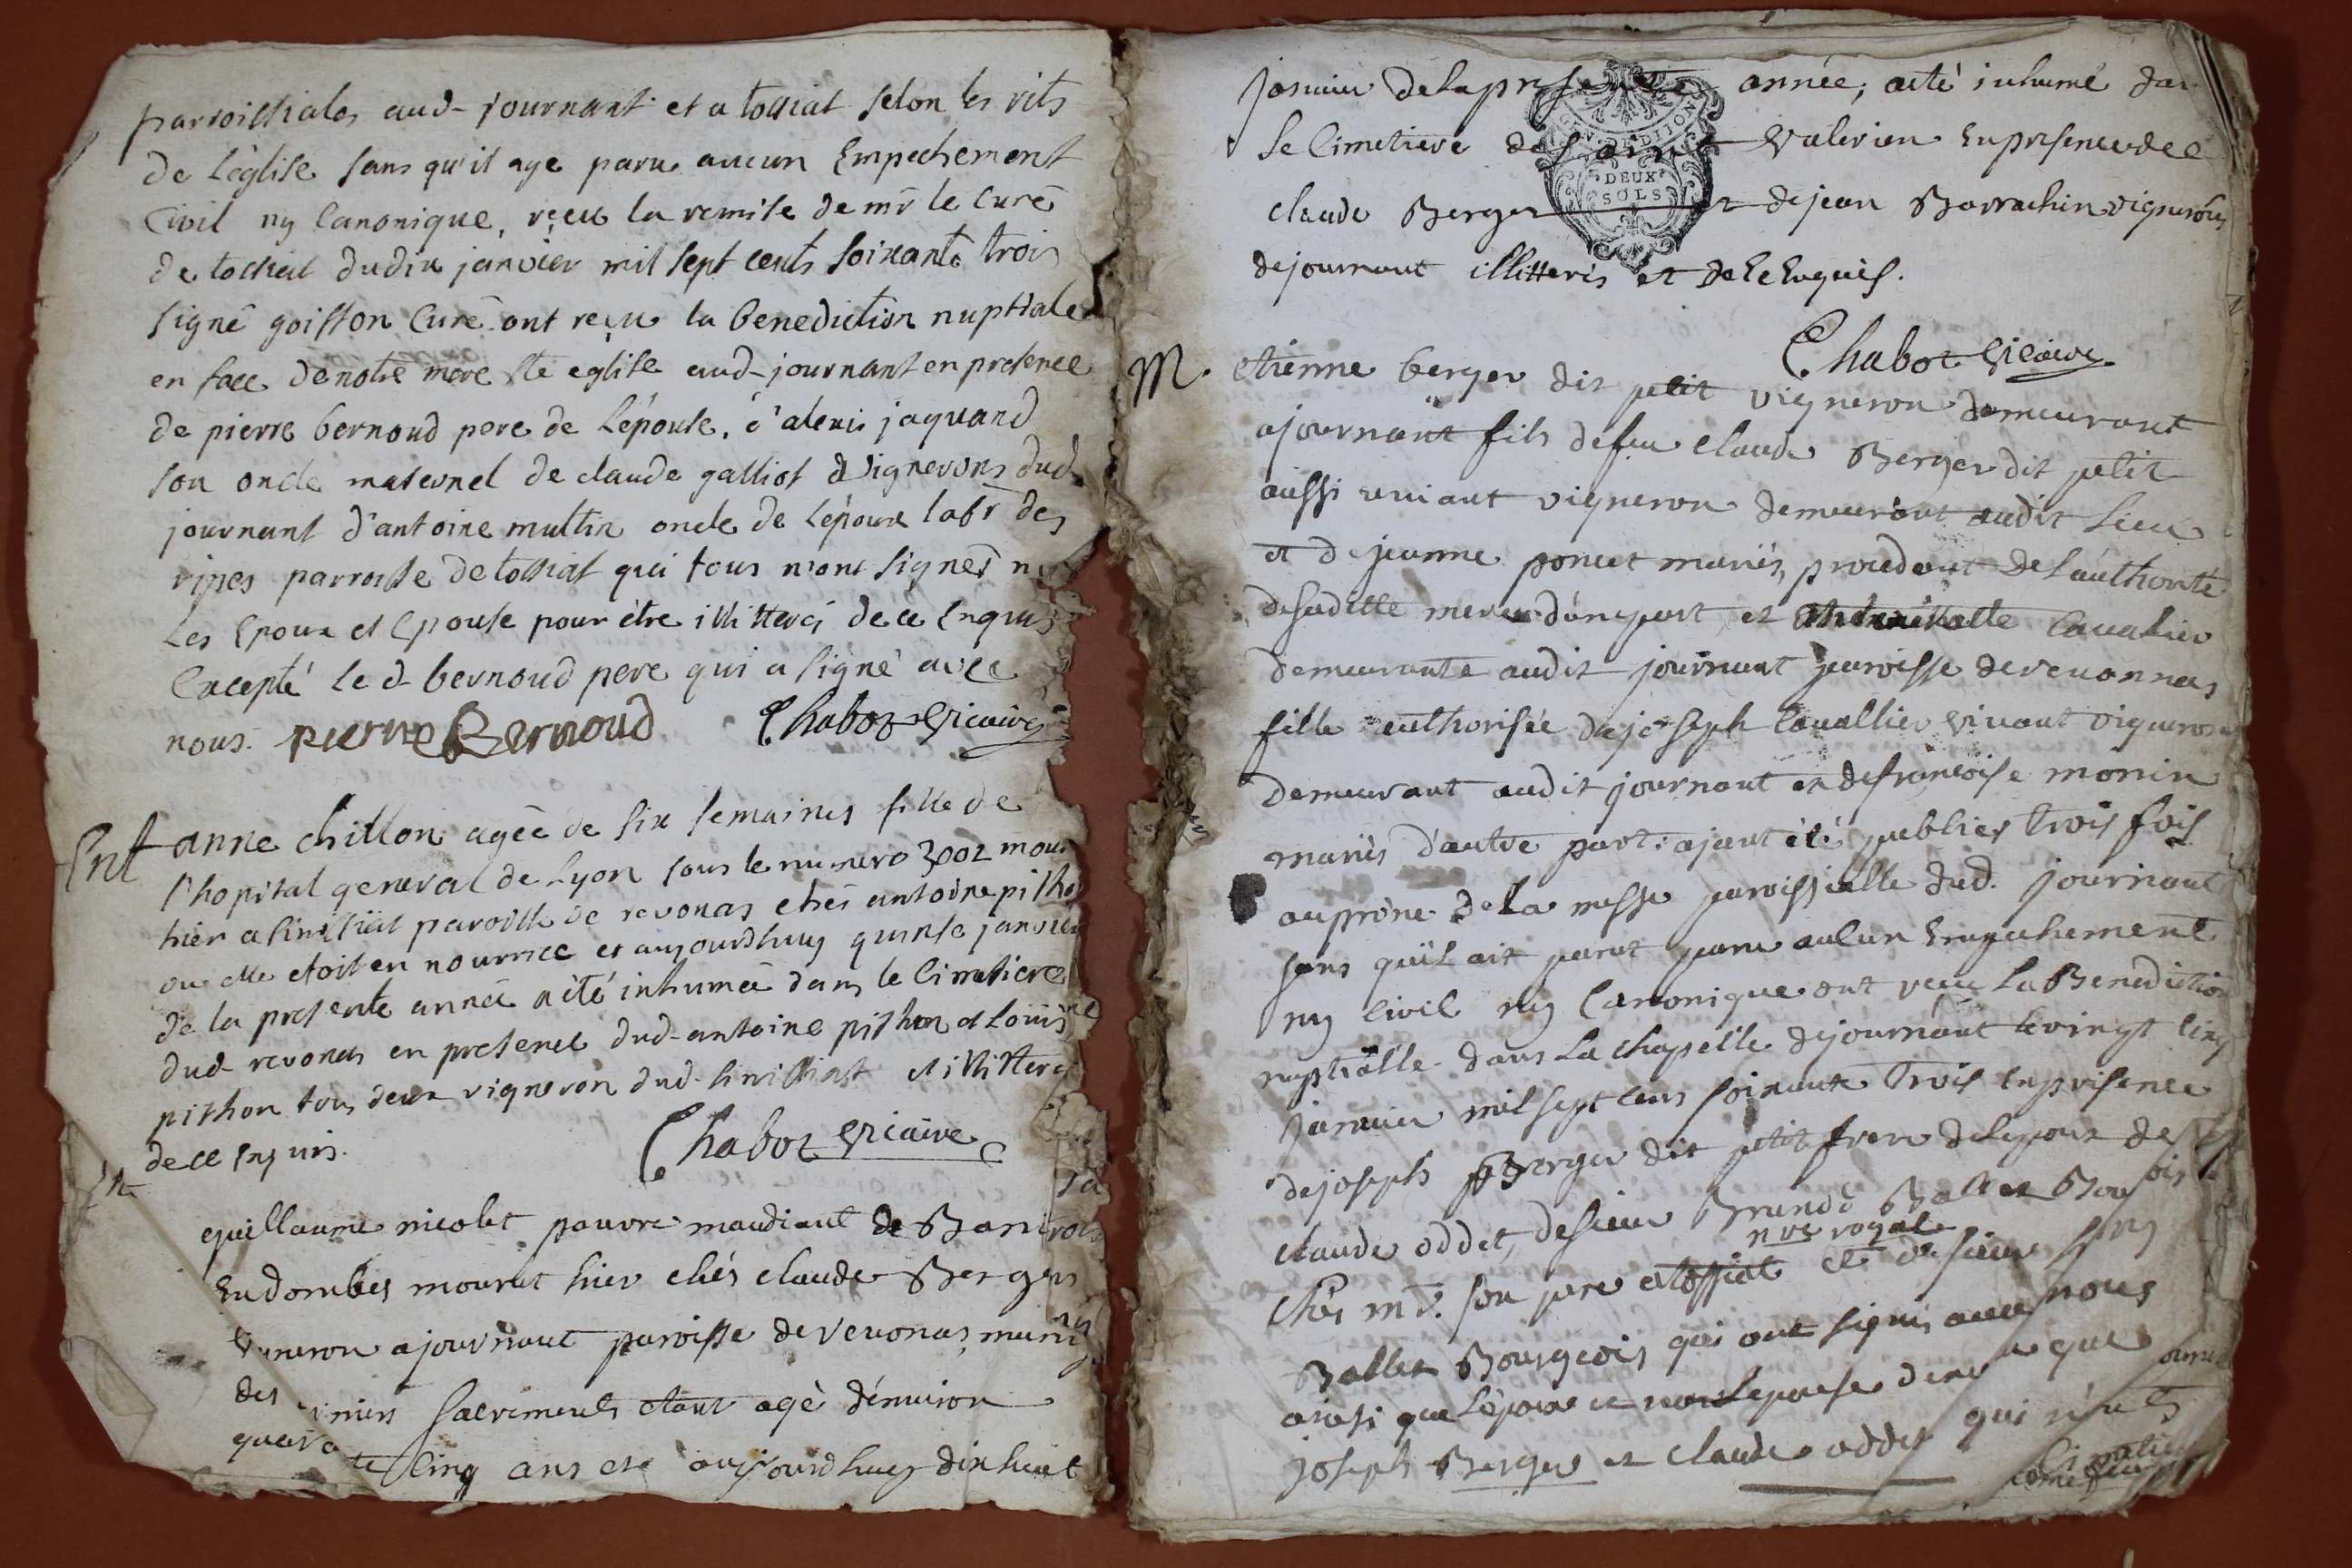 parroissiales aud- journant et a tossiat selon les rits
de l'église sans qu'il aye paru aucun Empechement
Civil ny Canonique, vëeu la remise de mr le Curé
de tossiat dudix janvier mil sept cents soixante trois
signé goisson Curé ont reçu la benediction nuptiale
en face de notre mere ste eglise aud- journant en presence
de pierre bernoud pere de L'épouse, d'alexis jaquand
son oncle maternel de claude galliot vignerons dud
journant d'antoine multin oncle de l'époux labr des
rippes parroisse de tossiat qui tous n'ont signes ni
Les Epoux et Epouse pour être illitterés de ce Enquis
Excepté le d- bernoud pere qui a signé avec
nous. pierre Bernoud Chabot vicaire
Ent anne chillon agée de six semaines fille de
l'hopital general de Lyon sous le numero 3002 mou
hier a sinissiat paroisse de revonas chés antoine pitho
ou elle etoit en nourrice et aujourdhuy quinse janvier
de la presente année a été inhumée dans le Cimetiere
dud- revonas en presence dud- antoine pithon et Louis
pithon tous deux vigneron dud- sinissiat et illitteres
de ce enquis. Chabot vicaire
guillaume nicolet pauvre mandiant de
En dombes mourut hier chés claude Berger
vigneron a journant paroisse de revonas, munis
des derniers sacrements etant agé d'environ
quarante Cinq ans et aujourdhuy dixhuit
janvier de la presente année, a eté inhumé dans
le Cimetiere de saint Valerien En presence de
claude Berger et de jean Barrachin vignerons
de journant illitterés et de ce Enquis.
Chabot vicaire
M. etienne berger dit petit vigneron demeurant
a journant fils de feu claude Berger dit petit
aussi vivant vigneron demeurant audit Lieu
et de jeanne poncet mariés, procedant de L'authorité
de saditte mere d'une part, et Cavalier
demeurante audit journant paroisse de revonnas
fille authorisée de joseph Cavallier vivant vigneron
demeurant audit journant et de françoise monin
mariés d'autre part: ajant été publiés trois fois
au prone de La messe paroissialle dud. journant
sans qu'il ait parut paru aucun Empechement
ny Civil ny Canonique ont receu La Benediction
nuptialle dans La chapelle de journant le vingt cinq
janvier mil sept cens soixante trois En presence
de joseph Berger dit petit frere de L'epoux de
claude oddet, de sieur Brunod Ballet Bou
nre royal
chés mr. son pere a tossiat et de sieur
Ballet Bourgeois qui ont signés avec nous
ainsi que L'époux et non L'epouse de
joseph Berger et claude oddet qui